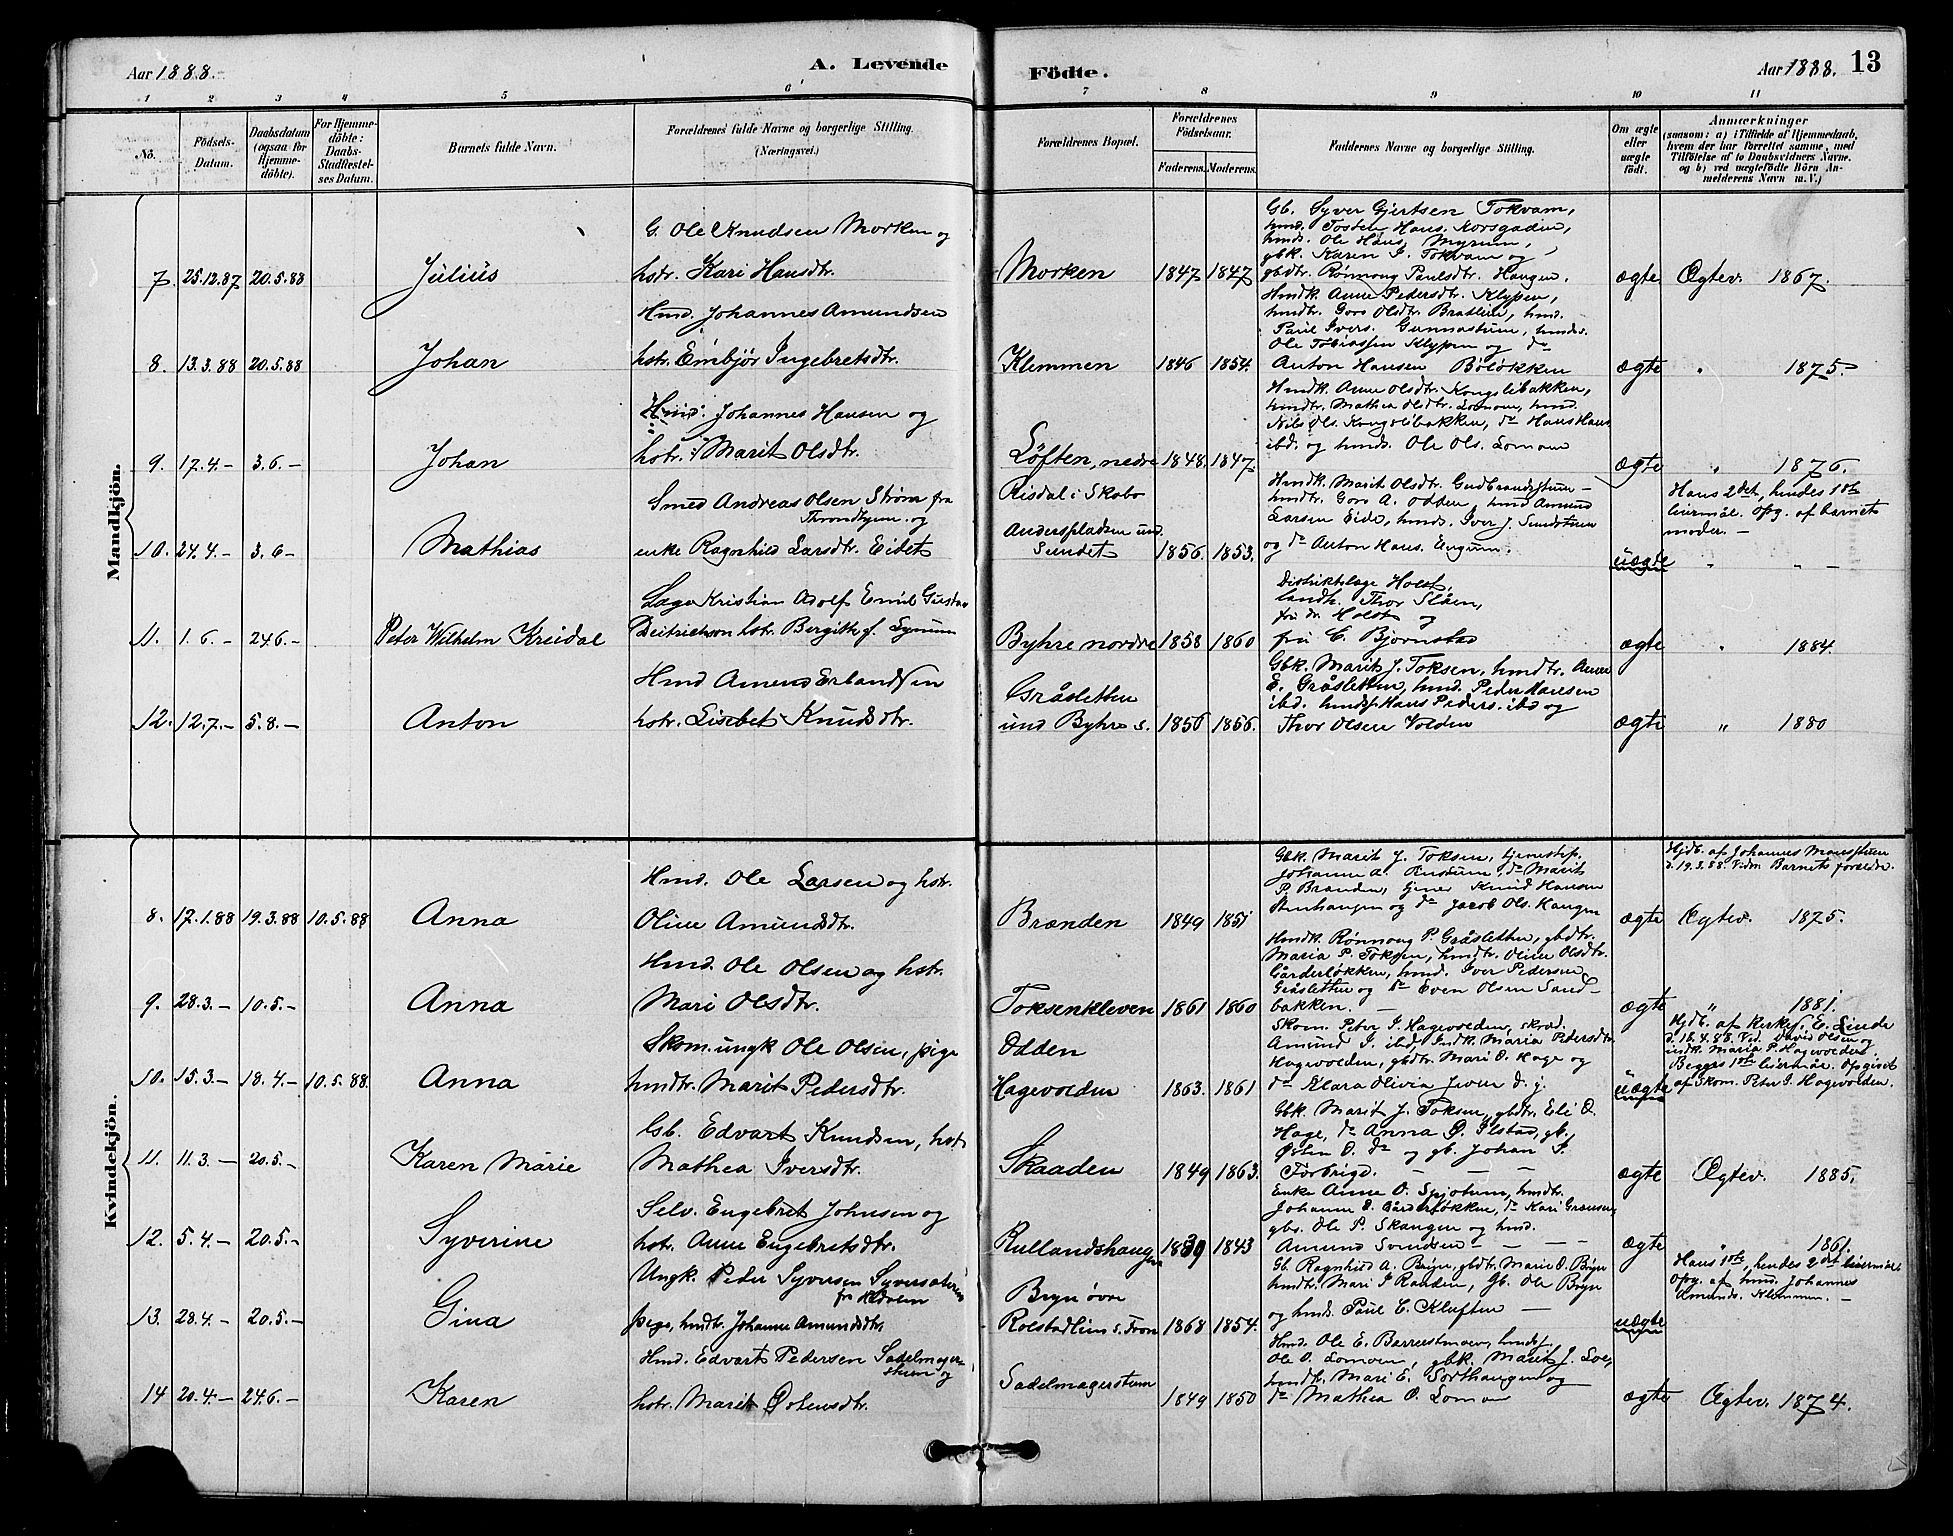 Aar 1888.
A. Levende
Födte.
Aar 1888.
13
1 2 3 4 5 6 7 8 9 10 11
No.
Födsels-
Datum.
Daabsdatum
(ogsaa for
Hjemme-
döbte).
For Hjemme-
döbte:
Daabs-
Stadfæstel-
ses Datum.
Barnets fulde Navn.
Forældrenes fulde Navne og borgerlige Stilling.
(Næringsvei.)
Forældrenes Bopæl.
Forældrenes
Födselsaar.
Faderens. Moderens.
Faddernes Navne og borgerlige Stilling.
Om ægte
eller
uægte
født.
Anmærkninger
(saasom: a) i Tilfælde af Hjemmedaab,
hvem der har forrettet samme, med
Tilföielse af to Daabsvidners Navne.
og b) ved uægtefödte Börn An-
melderens Navn m. V.)
Mandkjön.
7. 25.12.87 20.5.88
Julius
G. Ole Knudsen Morken og
hstr. Kari Hansdtr.
Morken 1847 1847
Gb. Syver Gjertsen Tokvam,
hmd. Tosten Hans. Korsgaden,
hmd. Ole Hans. Myrum,
gbk. Karen I. Tokvam og
gbdtr. Rønnoug Paulsdtr. Haugen.
ægte Ægtev. 1867.
8. 13.3.88 20.5.88
Johan
Hmd. Johannes Amundsen
hstr. Embjør Ingebretsdtr.
Klemmen 1846 1854.
Hmdk. Anne Pedersdtr. Klypen,
hmdtr. Goro Olsdtr. Bratlien, hmd.
Paul Ivers. Gunnastuen, hmds.
Ole Tobiassen Klypen og do
Anton Hansen Bøløkken
ægte " 1875.
9. 17.4.— 3.6.—
Johan
Hmd. Johannes Hansen og
hstr. Marit Olsdtr.
Løften, nedre 1848. 1847.
Hmdk. Anne Olsdtr. Kongslibakken,
hmdtr. Mathea Olsdtr. Lomoen, hmd.
Nils Ols. Kongslibakken, do Hans Hans.
ibd. og hmds. Ole Ols. Lomoen
ægte " 1876.
10. 24.4.— 3.6—
Mathias
Smed Andreas Olsen Strøm fra
Throndhjem. og
enke Ragnhild Larsdtr. Eidet
Risdal i Skabo
Anderspladsen und.
Sundet 1856. 1853.
Hmdk. Marit Olsdtr. Gudbrandstuen —
hmdtr. Goro A. Odden, hmd Amund
Larsen Eide, hmds. Iver J. Sundstuen
og do Anton Hans. Engum.
uægte
Hans 2det, hendes 1ste
leiermål. Opg. af barnets
moder. —
11. 1.6.— 24.6.—
Peter Wilhelm Kreidal
Læge Kristian Adolf Emil Gustav
Deitrichson hstr. Bergitte f. Lynum
Byhre nordre 1858 1860
Distriktslæge Holst,
landh. Thor Slåen,
fru dr. Holst og
fru E. Bjørnstad
ægte " 1884.
12. 12.7.— 5.8.—
Anton
Hmd Amund Erlandsen
hstr. Lisbet Knudsdtr.
Gråsletten
und Byhre s. 1856 1856.
Gbk. Marit J. Toksen, hmdtr. Anne
E. Gråsletten, hmd. Peder Hansen
ibd. hmds. Hans Peders. ibd og
Thor Olsen Volden
ægte " 1880
Kvindekjön.
8. 17.1.88 19.3.88 10.5.88
Anna
Hmd. Ole Larsen og hstr.
Oline Amundsdtr.
Brænden 1849 1851
Gbk. Marit J. Toksen, tjenestep.
Johanne A. Rustum, do Marit
P. Branden, tjener Knud Hansen
Stenhaugen og do Jacob Ols. Haugen
ægte Ægtev. 1875.
Hjdb. af Johannes Mansstuen
d. 19.3.88. Vidn. Barnets forældre.
9. 28.3.— 10.5.—
Anna
Hmd. Ole Olsen og hstr.
Mari Olsdtr.
Toksenkleven 1861 1860
Hmdk. Rønnoug P. Gråsletten, gbdtr.
Maria P. Toksen, hmdtr. Oline Olsdtr.
Gårderløkken, hmd. Iver Pedersen
Gråsletten og do Even Olsen Sand-
bakken. —
ægte " 1881.
10. 15.3.— 18.4.— 10.5.88.
Anna
Skom. ungk Ole Olsen, pige
hmdtr. Marit Pedersdtr.
Odden
Hagevolden 1863. 1861
Skom. Peter I. Hagevolden, skræd.
Amund I. ibd, Indk. Maria Pedersdtr.
Hagevolden, gbdtr. Mari O. Hage og
do Klara Olivia Iversd. j.
uægte
Hjdb. af Kirkes. E. Linde
d. 18.4.88. Vid. David Olsen og
indk. Maria P. Hagevolden.
Begges 1ste leiermål. Opgivet
af Skom. Peter I. Hagevolden.
11. 11.3.— 20.5.—
Karen Marie
Gb. Edvart Knudsen, hstr
Mathea Iversdtr.
Skaaden 1849 1863.
Gbk. Marit J. Toksen, gbdtr. Eli O.
Hage, do Anna O. Ilstad, gb.
Østen O. do og gb. Johan I.
Forbrigd. — — —
ægte Ægtev. 1885.
12. 5.4.— 20.5.—
Syverine
Selv. Engebret Johnsen og
hstr. Anne Engebretsdtr.
Rullandshaugen 1839 1843
Enke Anne O. Spjotum, hmdtr.
Johanne E. Gårderløkken, do Kari Gransen,
gbs. Ole P. Skaugen og hmd.
Amund Svendsen — — —
ægte " 1861.
13. 28.4.— 20.5.—
Gina
Ungk. Peder Syversen Syversæteren
fra Kvolen
pige, hmdtr. Johanne Amundsdtr.
Bryn øvre
Rolstadlien s. Fron 1868 1854.
Gb. Ragnhild A. Bryn, gbdtr. Marie O. Bryn
hmdtr. Mari I. Raaden, Gb. Ole Bryn
og hmd. Paul E. Kluften —
uægte
Hans 1ste, hendes 2det leiermål
Opg. af hmd. Johannes
Amunds. Klemmen. —
14 20.4.— 24.6.—
Karen
Hmd. Edvart Pedersen Sadelmager-
stuen og
hstr. Marit Østensdtr.
Sadelmagerstuen
1849 1850
Hmd. Ole E. Barrestmoen, hmds.
Ole O. Lomoen, gbk. Marit J. Loe,
hmdtr. Mari E. Sorthaugen og
do Mathea O. Lomoen
ægte Ægtev. 1874.